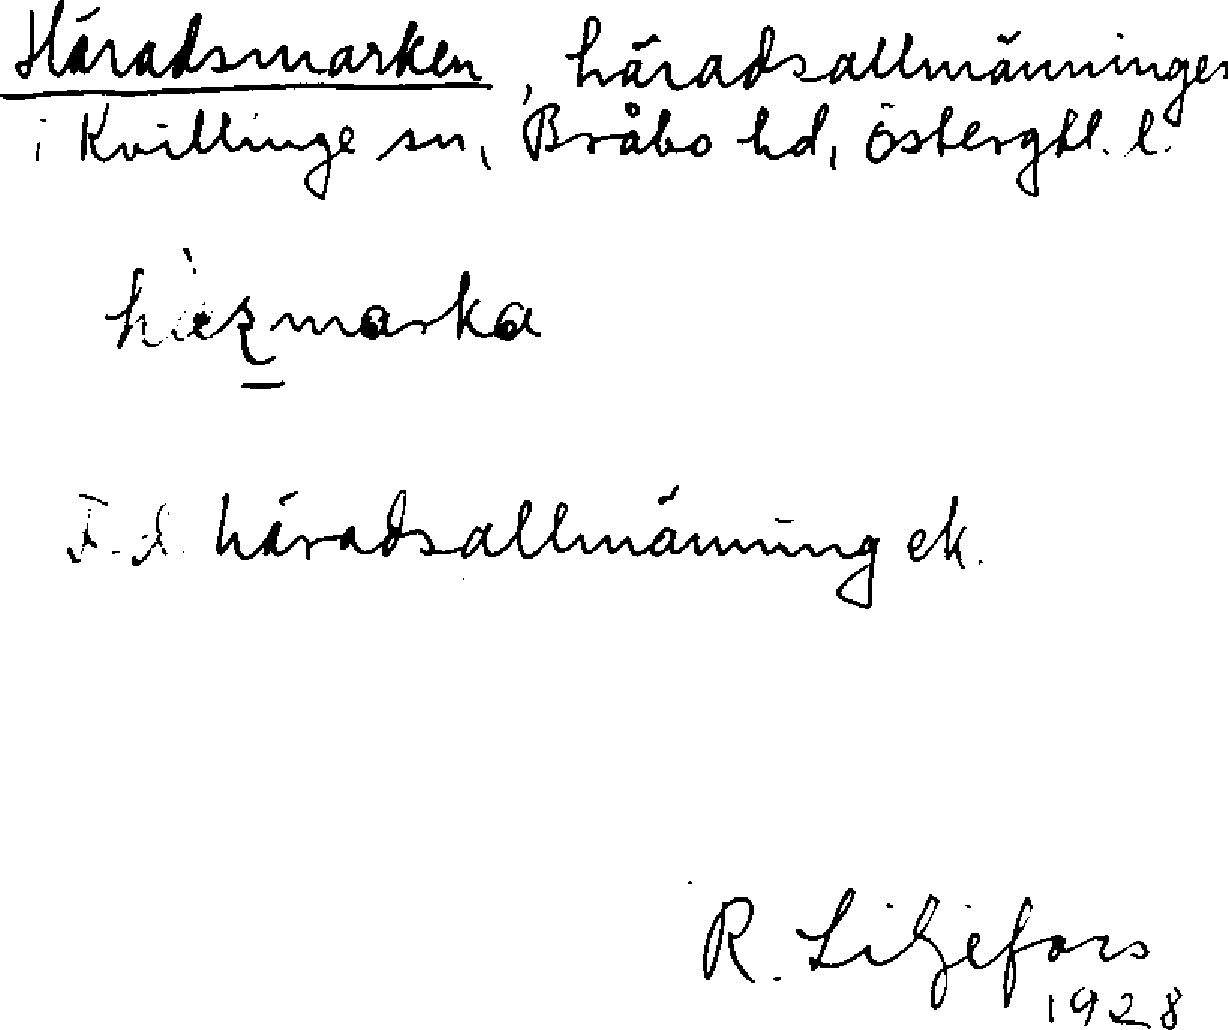 Häradsmarken, häradsallmänningen
i Kvillinge sn, Bråbo hd, östergtl. l.
F.d. häradsallmänning ek.
R. Liljefors
1928